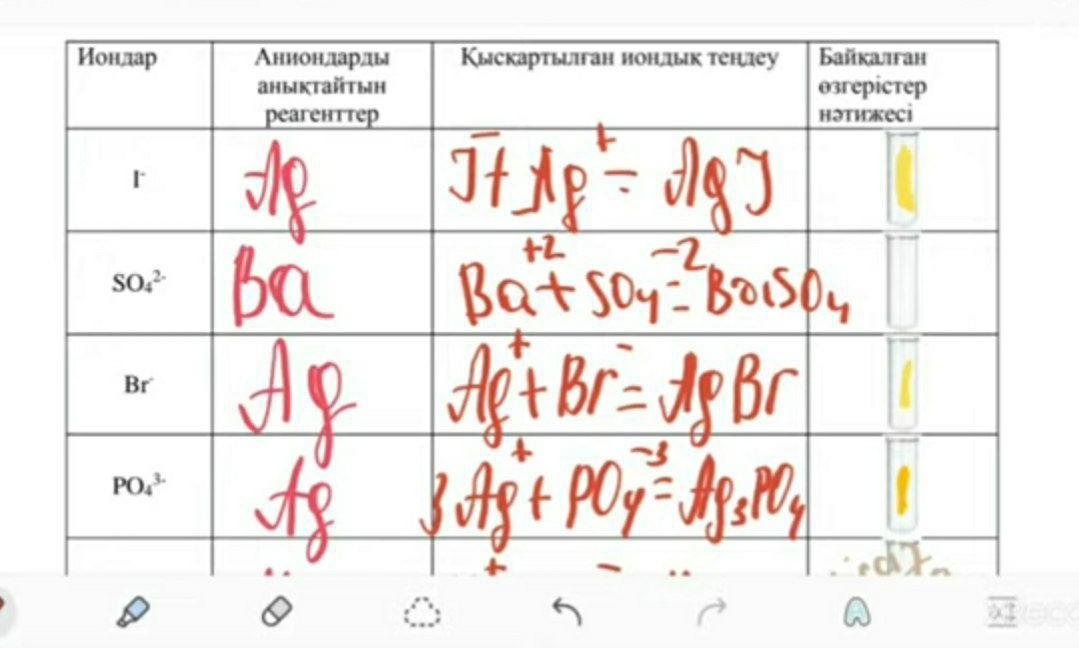 Иондар
Аниондарды
анықтайтын
реагенттер
Қысқартылған иондық теңдеу
Байқалған
өзгерістер
нәтижесі
I⁻
Ag
J⁻ + Ag⁺ = AgJ
SO₄²⁻
Ba
Ba⁺² + SO₄⁻² = BaSO₄
Br⁻
Ag
Ag⁺ + Br⁻ = AgBr
PO₄³⁻
Ag
3Ag⁺ + PO₄⁻³ = Ag₃PO₄